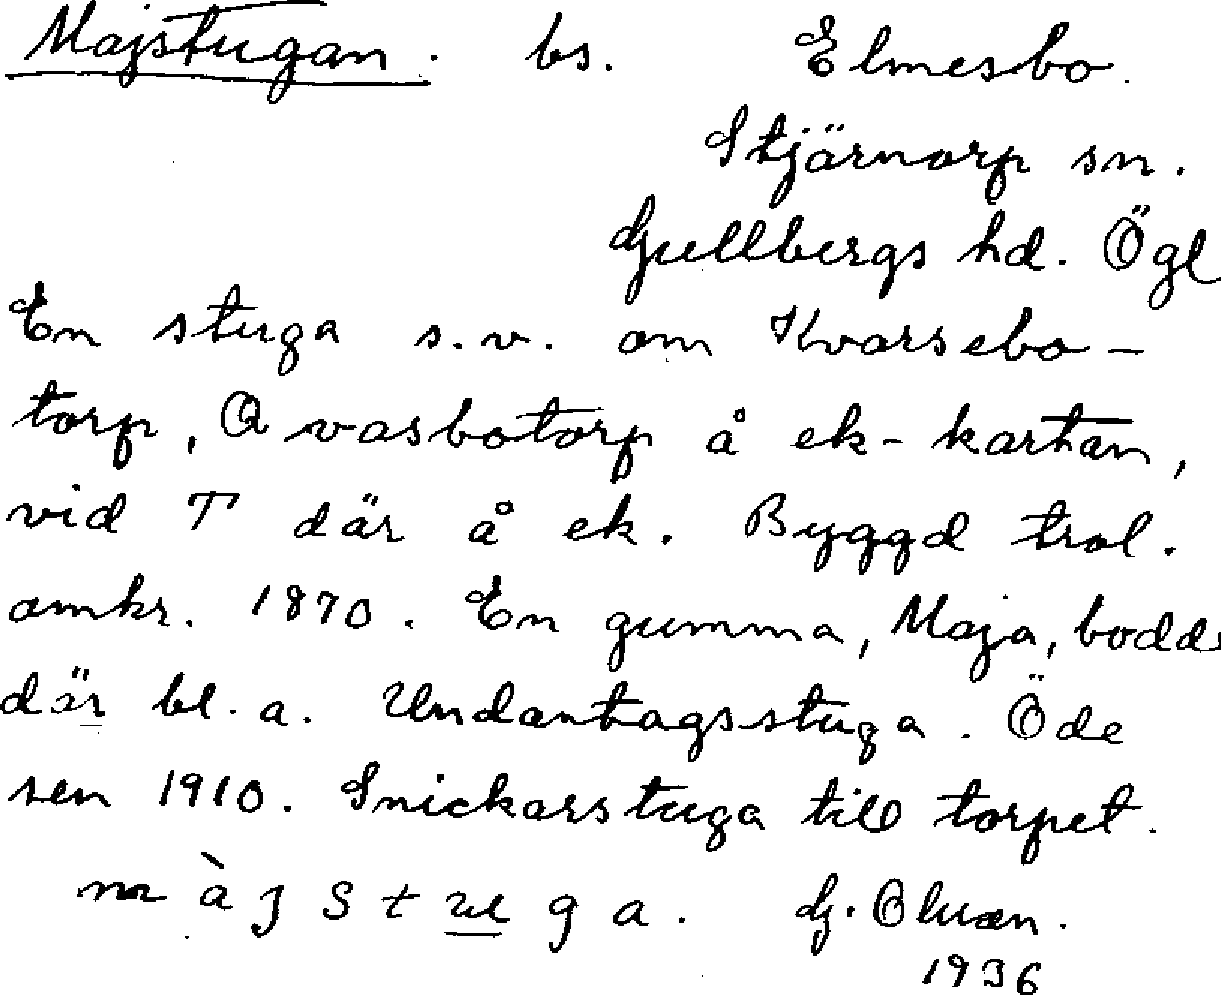 Majstugan. bs. Elmesbo.
Stjärnorp sn.
Gullbergs hd. Ögl
En stuga s.v. om Kvarsebo-
torp, Qvasbotorp å ek-kartan,
vid T där å ek. Byggd trol.
omkr. 1870. En gumma, Maja, bodde
där bl. a. Undantagsstuga. Öde
sen 1910. Snickarstuga till torpet.
m à j s t u g a. G. Oluæn.
1936